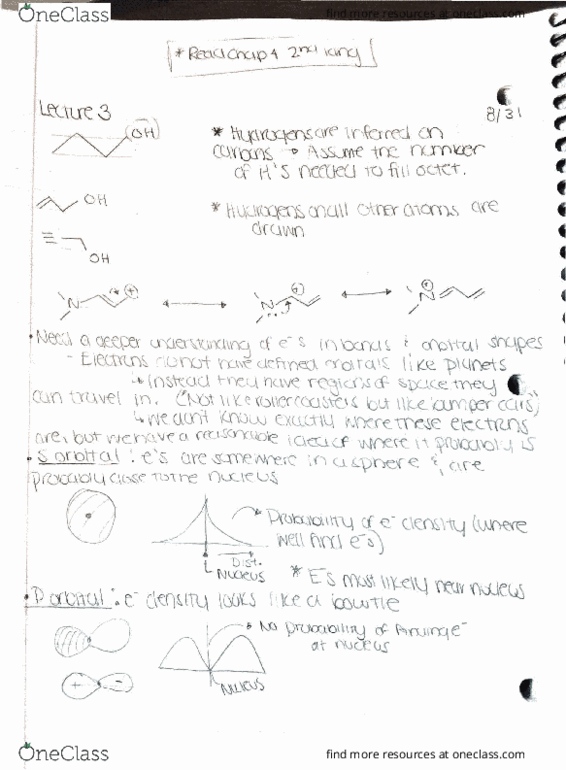 OneClass
find more resources at oneclass.com
* Read chap 4 2nd
Lecture 3
8/31
OH
* Hydrogens are inferred on
carbons → Assume the number
of H's needed to fill octet.
OH
* Hydrogens on all other atoms are
drawn
OH
N
+
N
+
N
+
• Need a deeper understanding of e⁻s in bonds & orbital shapes
- Electrons do not have defined orbitals like planets
↳ Instead they have regions of space they
can travel in. (Not like rollercoasters but like bumper cars)
↳ we don't know exactly where these electrons
are, but we have a reasonable idea of where it probably is
• S orbital : e⁻s are somewhere in a sphere & are
probably close to the nucleus
* Probability of e⁻ density (where
well find e⁻s)
Dist.
Nucleus
* E⁻s most likely near nucleus
• P orbital : e⁻ density looks like a bowtie
* No probability of finding e⁻
at nucleus
+ -
Nucleus
OneClass
find more resources at oneclass.com